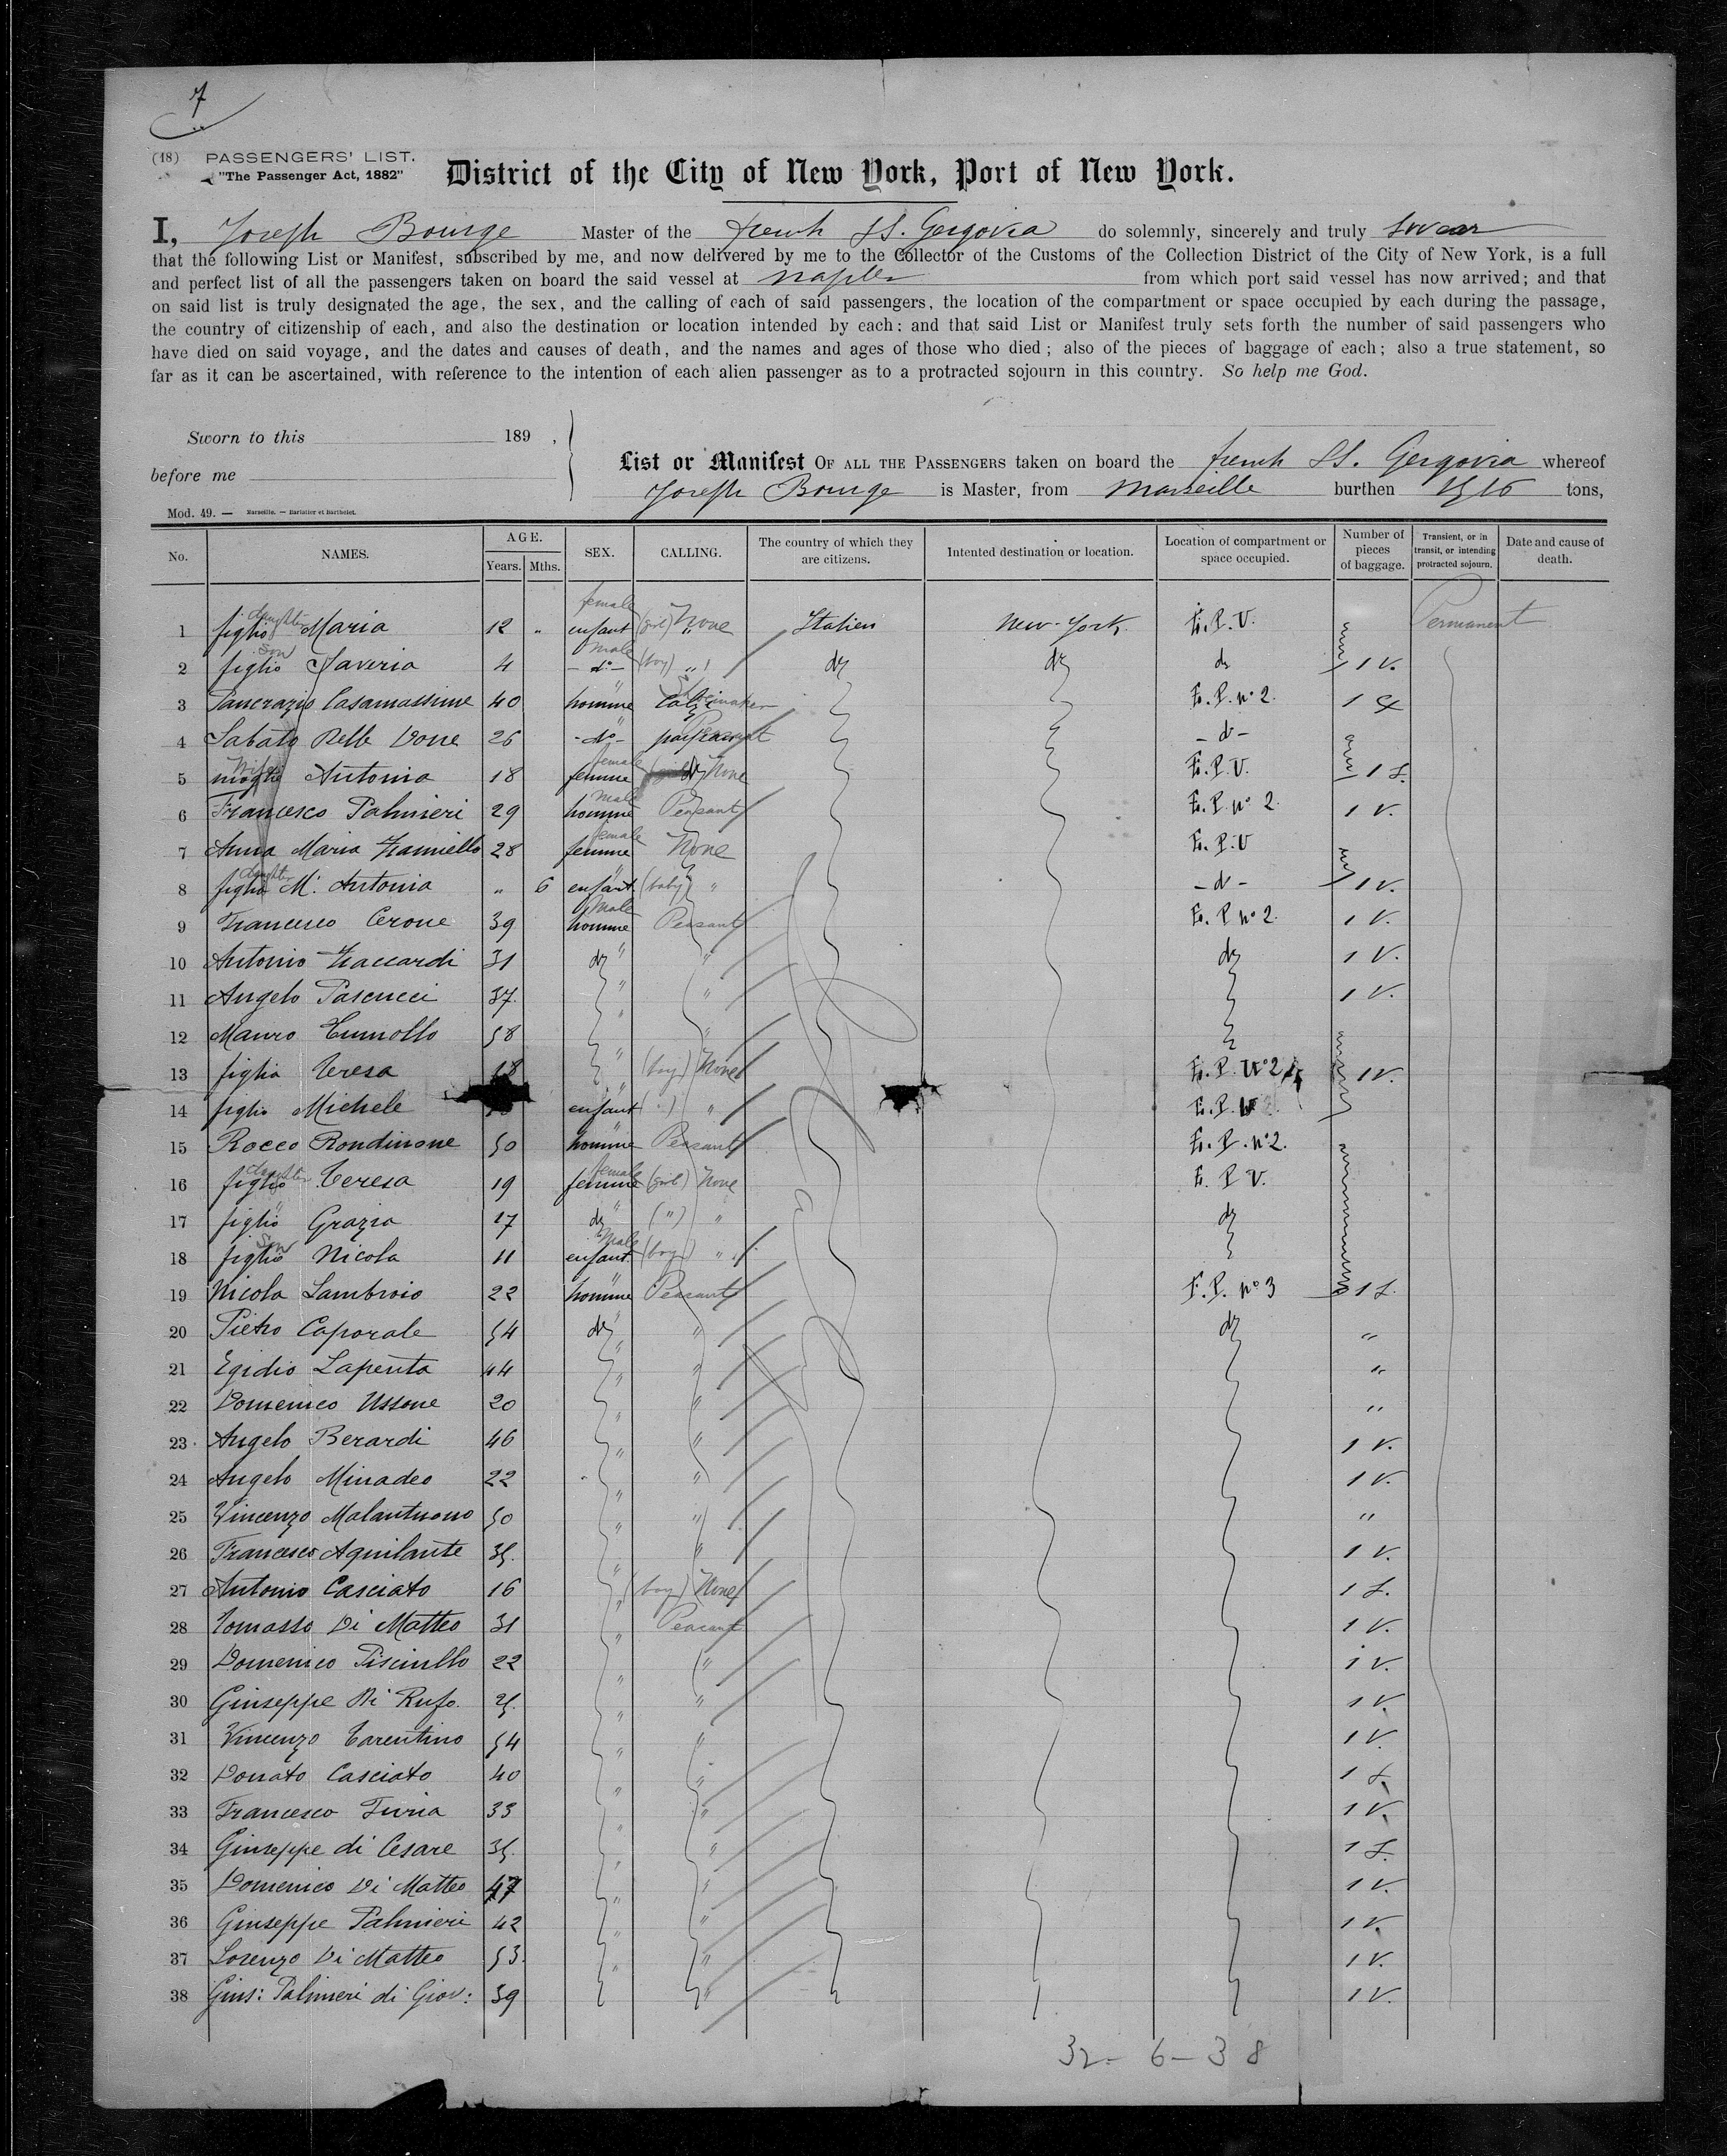 7
(18) PASSENGERS' LIST.
"The Passenger Act, 1882"
District of the City of New York, Port of New York.
I, Joseph Bourge Master of the french SS. Gergovia do solemnly, sincerely and truly swear
that the following List or Manifest, subscribed by me, and now delivered by me to the Collector of the Customs of the Collection District of the City of New York, is a full
and perfect list of all the passengers taken on board the said vessel at Naples from which port said vessel has now arrived; and that
on said list is truly designated the age, the sex, and the calling of each of said passengers, the location of the compartment or space occupied by each during the passage,
the country of citizenship of each, and also the destination or location intended by each; and that said List or Manifest truly sets forth the number of said passengers who
have died on said voyage, and the dates and causes of death, and the names and ages of those who died; also of the pieces of baggage of each; also a true statement, so
far as it can be ascertained, with reference to the intention of each alien passenger as to a protracted sojourn in this country. So help me God.
Sworn to this 189 ,
before me
List or Manifest OF ALL THE PASSENGERS taken on board the french SS. Gergovia whereof
Joseph Bourge is Master, from Marseille burthen tons,
Mod. 49. — Marseille. — Barlatier et Barthelet.
No. NAMES. AGE. Years. Mths. SEX. CALLING. The country of which they are citizens. Intented destination or location. Location of compartment or space occupied. Number of pieces of baggage. Transient, or in transit, or intending protracted sojourn. Date and cause of death.
1 figlia daughter Maria 12 " female enfant (girl) None Italien New-York E.P.V. Permanent
2 figlio son Saverio 4 male -do- (boy) " do do do 1 V.
3 Pancrazio Casamassime 40 " homme Shoemaker E.P. no 2. 1
4 Sabato Delle Done 26 " -do- Peasant -do-
5 moglie Wife Antonia 18 female femme None E.P.V. 1 S.
6 Francesco Palmieri 29 Male homme Peasant E.P. no 2. 1 V.
7 Anna Maria Zaniello 28 female femme None E.P.V
8 figlia daughter Ma. Antonia " 6 " enfant (baby) " -do- 1 V.
9 Francesco Cerone 39 Male homme Peasant E.P no 2. 1 V.
10 Antonio Zaccardi 31 do " " do 1 V.
11 Angelo Pascucci 37. " " 1 V.
12 Mauro Tumollo 58 " "
13 figlia Teresa 18 " (boy) None E.P. no 2 1 V.
14 figlio Michele " enfant (") " E.P.
15 Rocco Rondinone 50 " homme Peasant E.P. no 2.
16 figlia daughter Teresa 19 female femme (girl) None E. P V.
17 figlia " Grazia 17 do " (") " do
18 figlio Son Nicola 11 Male enfant (boy) "
19 Nicola Lambroio 22 " homme Peasant E.P. no 3 1 S.
20 Pietro Caporale 54 do " " do "
21 Egidio Lapenta 44 " " "
22 Domenico Ussone 20 " " "
23 Angelo Berardi 46 " " 1 V.
24 Angelo Minadeo 22 " " 1 V.
25 Vincenzo Malantuono 50 " " "
26 Francesco Aquilante 35. " " 1 V.
27 Antonio Casciato 16 " (boy) None 1 S.
28 Tomasso Di Matteo 31 " Peasant 1 V.
29 Domenico Pisciullo 22 " " 1 V.
30 Giuseppe Di Rufo. 25. " " 1 V.
31 Vincenzo Tarentino 54 " " 1 V.
32 Donato Casciato 40 " " 1 S.
33 Francesco Furia 33 " " 1 V.
34 Giuseppe di Cesare 35. " " 1 S.
35 Domenico Di Matteo 47 " " 1 V.
36 Giuseppe Palmieri 42 " " 1 V.
37 Lorenzo Di Matteo 53. " " 1 V.
38 Gius: Palmieri di Giov: 39 " 1 V.
32 - 6 - 38